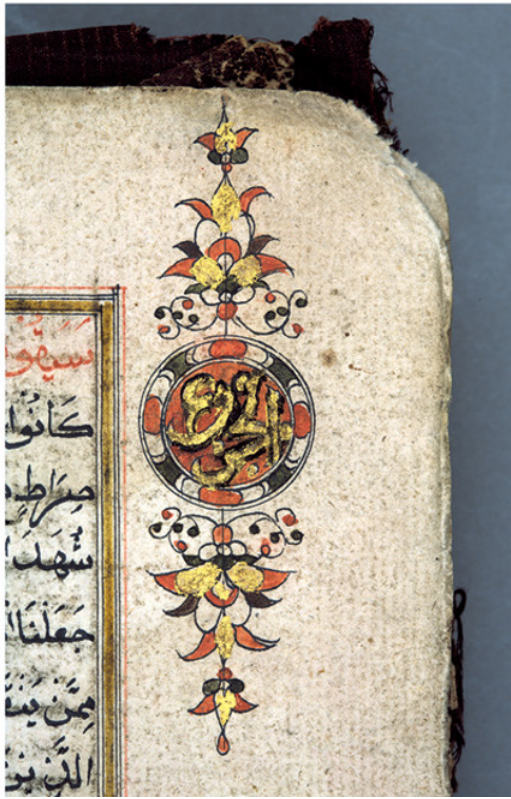 الجزء
سَيَقُو
كَانُوا
صِرَاطٍ
شُهَدَا
جَعَلْنَا
مِمَّنْ يَنْقَ
الَّذِينَ